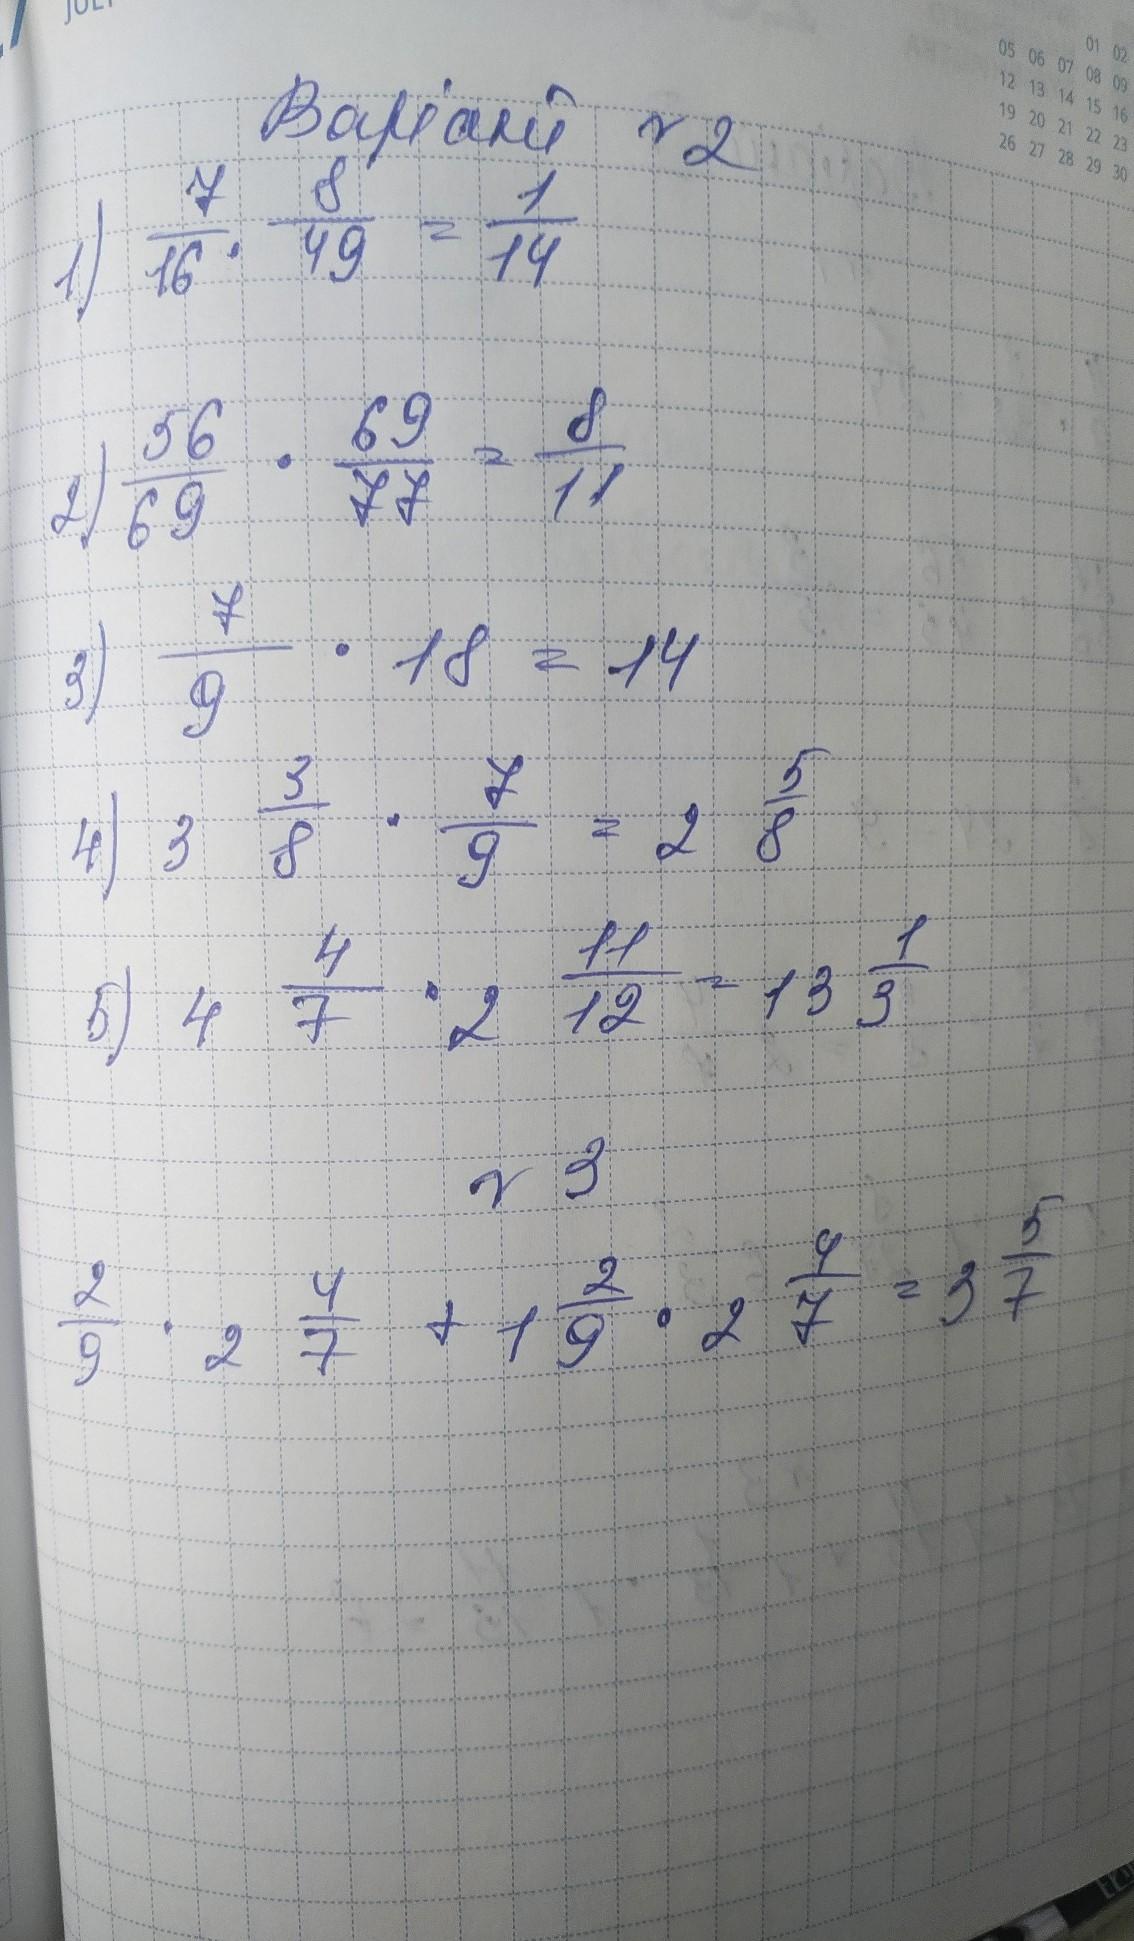 JULY
01 02
05 06 07 08 09
12 13 14 15 16
19 20 21 22 23
26 27 28 29 30
Варіант №2
1) 7/16 · 8/49 = 1/14
2) 56/69 · 69/77 = 8/11
3) 7/9 · 18 = 14
4) 3 3/8 · 7/9 = 2 5/8
5) 4 4/7 · 2 11/12 = 13 1/3
№ 3
2/9 · 2 4/7 + 1 2/9 · 2 4/7 = 3 5/7